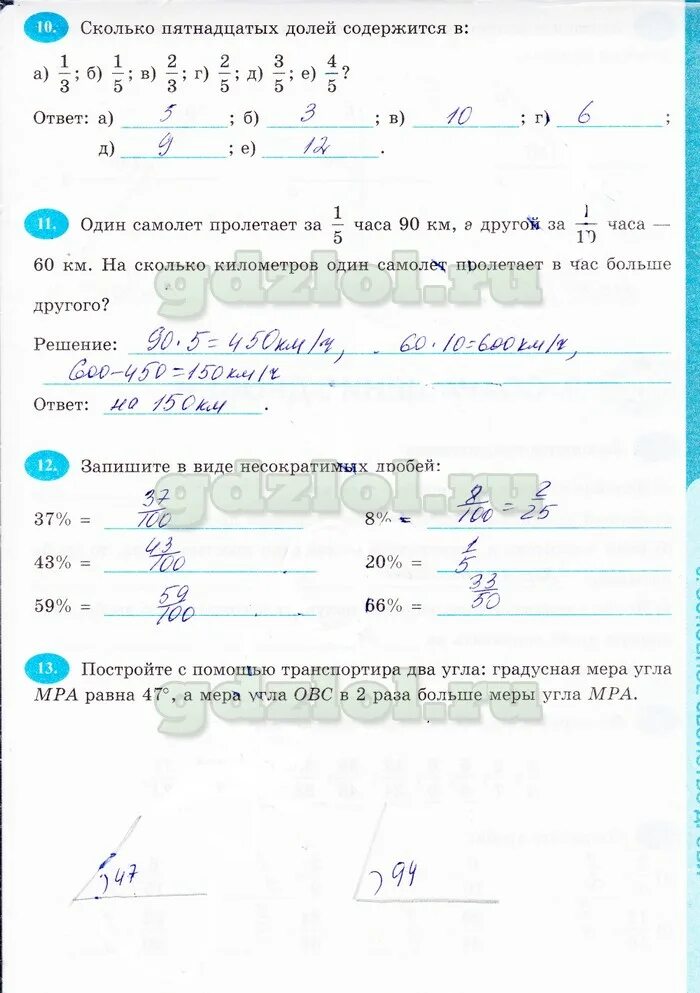 10. Сколько пятнадцатых долей содержится в:
а) 1/3; б) 1/5; в) 2/3; г) 2/5; д) 3/5; е) 4/5?
Ответ: а) 5 ; б) 3 ; в) 10 ; г) 6 ;
д) 9 ; е) 12 .
11. Один самолет пролетает за 1/5 часа 90 км, а другой за 1/10 часа —
60 км. На сколько километров один самолет пролетает в час больше
другого?
gdzlol.ru
Решение: 90·5=450км/ч, 60·10=600км/ч,
600-450=150км/ч
Ответ: на 150км .
12. Запишите в виде несократимых дробей:
gdzlol.ru
37% = 37/100 8% = 8/100 = 2/25
43% = 43/100 20% = 1/5
59% = 59/100 66% = 33/50
13. Постройте с помощью транспортира два угла: градусная мера угла
MPA равна 47°, а мера угла OBC в 2 раза больше меры угла MPA.
gdzlol.ru
47 94